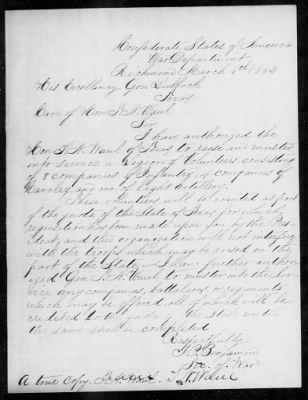 Confederate States of America
War Department
Richmond March 8th 1862
His Excellency Gov Lubbock
Texas
Care of Hon T. N. Waul
Sir
I have authorized the
Hon T. N. Waul of Texas to raise and muster
into service a Legion of Volunteers consisting
of 8 companies of Infantry, 4 companies of
Cavalry and one of Light Artillery.
These volunteers will be counted as part
of the quota of the State of Texas for which
requisition has been made upon you by the Pres-
ident, and this organization will not interfere
with the troops which may be raised on the
part of the State. I have further author-
ized Gen T. N. Waul to muster into the Ser-
vice any companies, battalions or regiments
which may be offered all of which will be
credited to the quota of the State until
the same shall be completed
Respectfully
Benjamin
Sec. of War
A true Copy. T. N. Waul